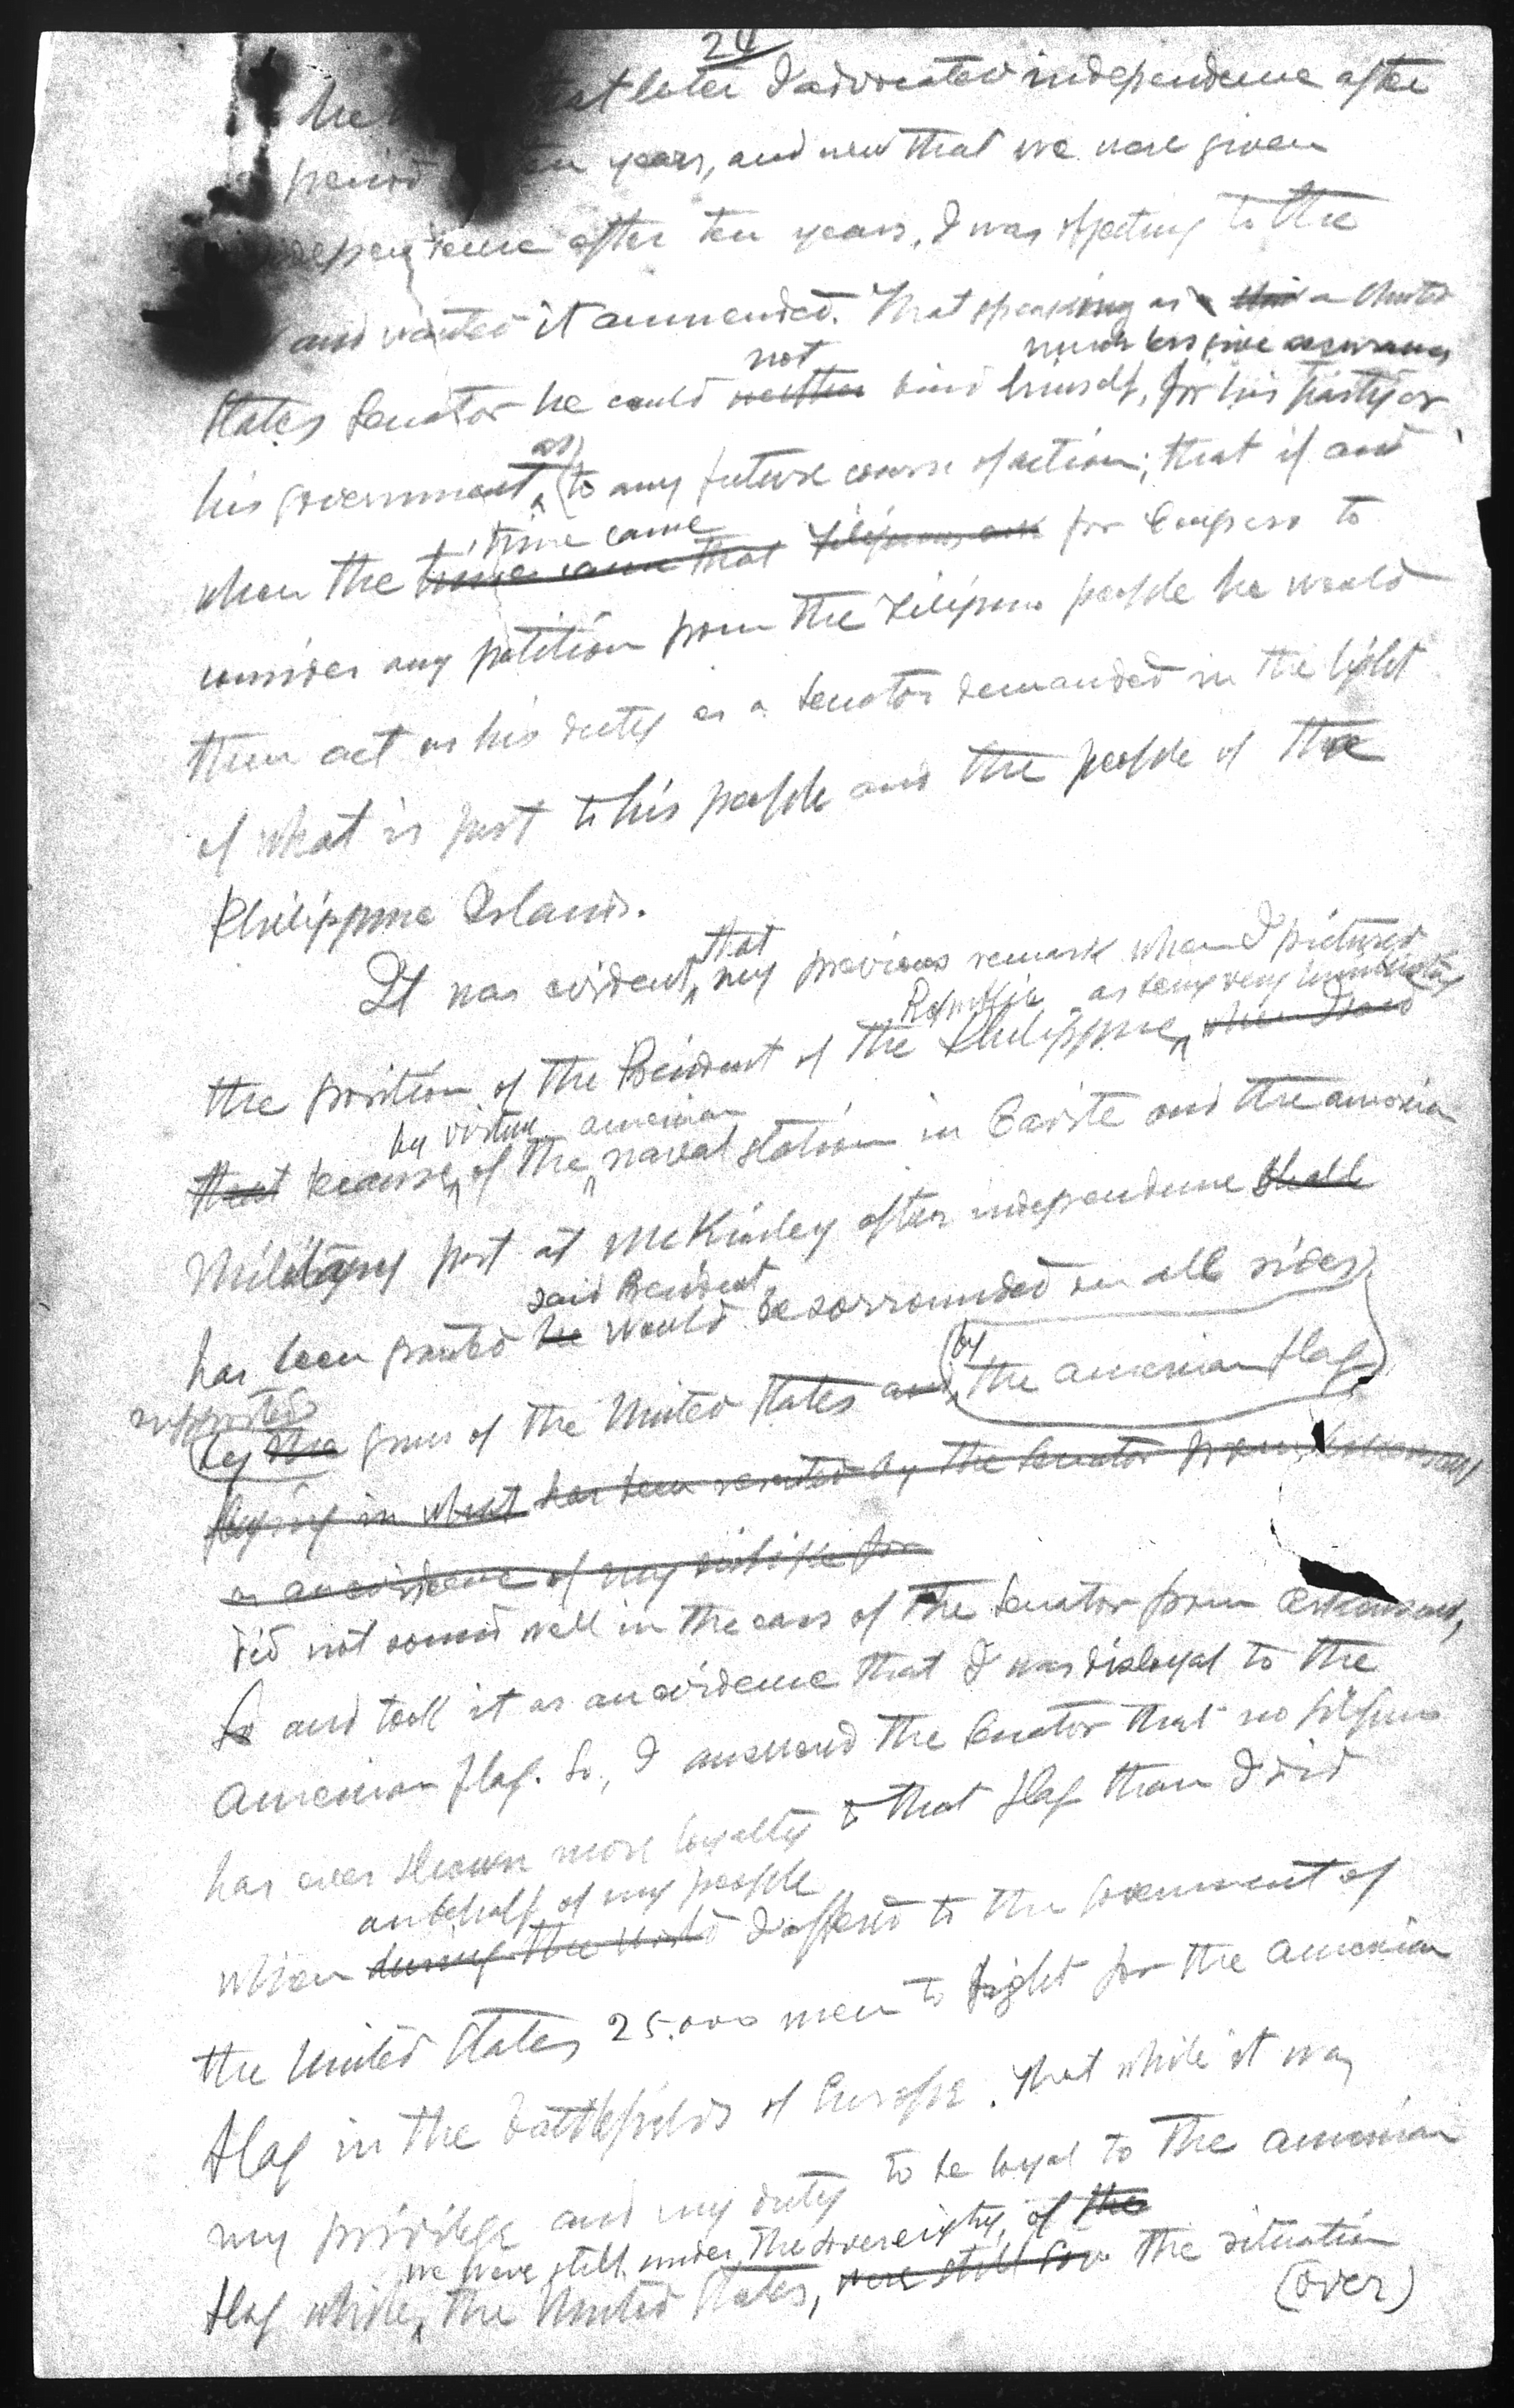 24
he that later I advocated independence after
period ten years, and now that we were given
independence after ten years, I was objecting to the
and wanted it ammended. That speaking as a United
much less give assurances
not
States Senator he could neither bind himself, for his party or
as
his government to any future course of action; that if and
time came
when the time came that Filipinos ask for Congress to
consider any petition from the Filipino people he would
then act as his duty as a Senator demanded in the light
of what is just to his people and the people of the
Philippine Islands.
that
It was evident my previous remark when I pictured
Republic as being very humiliating
the position of the President of the Philippine when I said
by virtue american
that because of the naval station in Cavite and the american
Military post at McKinley after independence shall
said President
has been granted he would be sorrounded on all sides
by
supported
by the guns of the United States and the american flag
flying in what has been resented by the Senator from Arkansas,
as an evidence of my dislike for
did not sound well in the ears of the Senator from Arkansas,
So and took it as an evidence that I was disloyal to the
American flag. So, I answered the Senator that no filipino
has ever shown more loyalty to that flag than I did
on behalf of my people
when during the World I offered to the Government of
the United States 25.000 men to fight for the american
flag in the battlefields of Europe. That while it was
my privilege and my duty to be loyal to the american
we were still under the sovereignty of the
flag while the United States, were still the situation
(over)